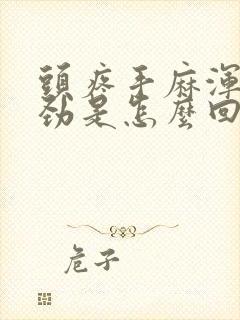 頭疼手麻渾
勁是怎麼回
危子